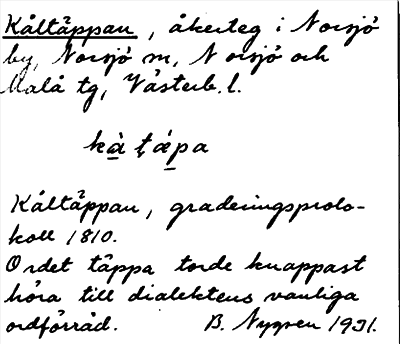 Kåltäppan, åkerteg i Norsjö
by, Norsjö sn, Norsjö och
Malå tg, Västerb. l.
kà̱ ţæ̱pa
Kåltäppan, graderingsproto-
koll 1810.
Ordet täppa torde knappast
höra till dialektens vanliga
ordförråd. B. Nygren 1931.